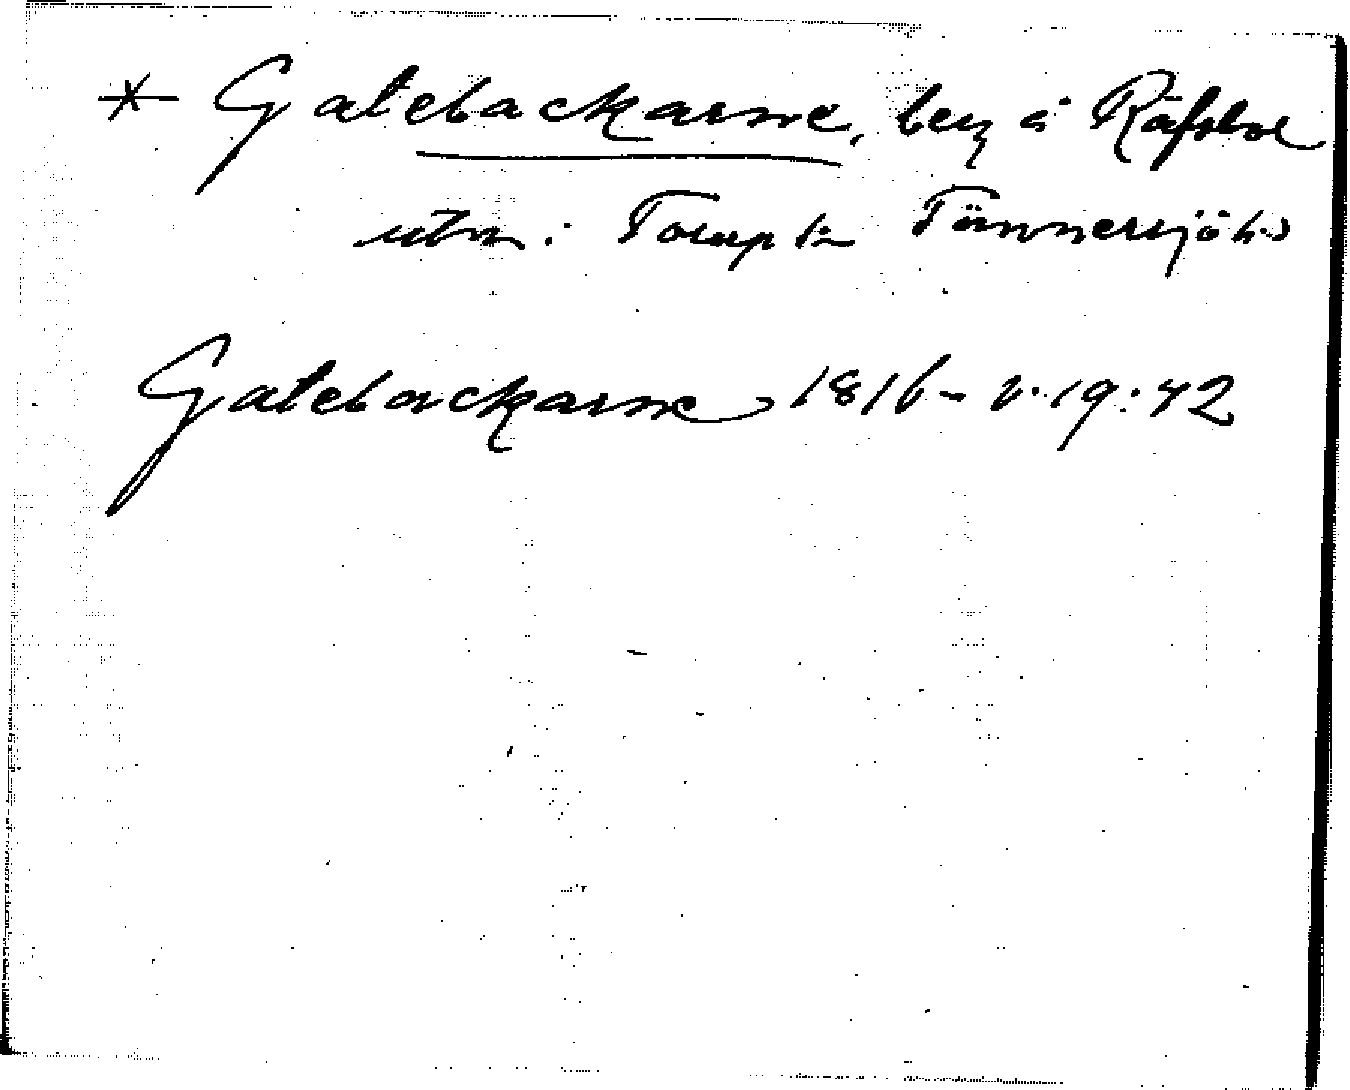 * Gatebackarne, beg å Räfsbol
utm: Torup sn Tönnersjö hd
Gatebackarne 1816 - v. 19:42